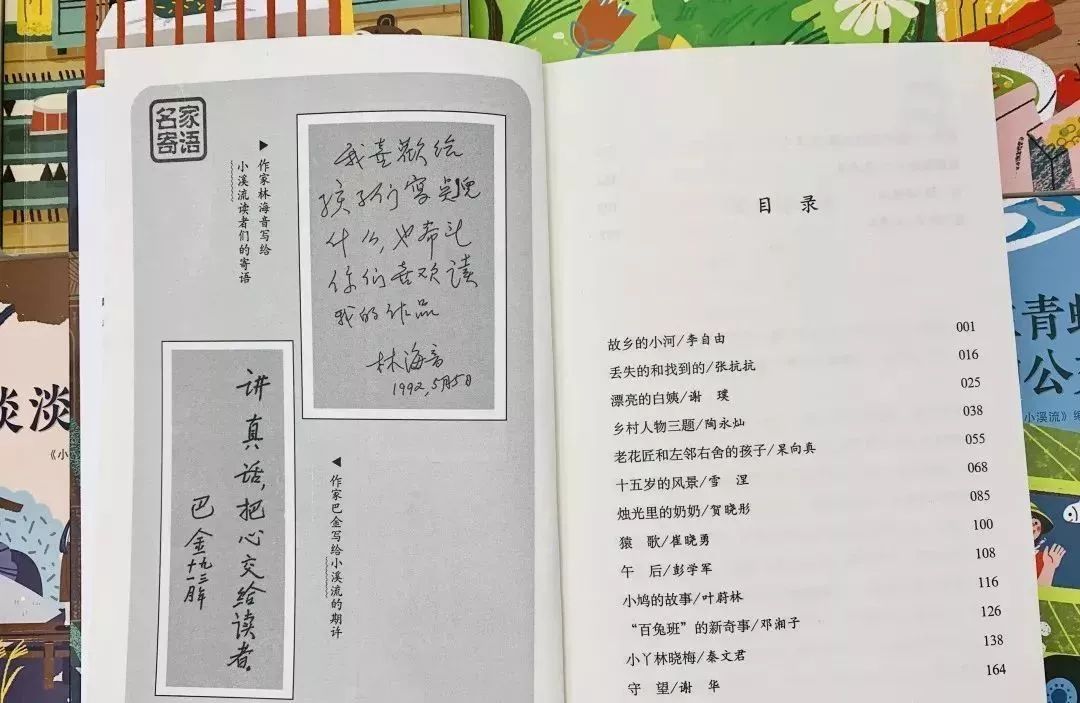 名家
寄语
▶作家林海音写给
小溪流读者们的寄语
我喜歡给
孩子们寫奌兒
什么,也希望
你们喜欢读
我的作品
林海音
1992,5月5日
讲真话,把心交给读者。
巴金
九三年
十一月
◀作家巴金写给小溪流的期许
目 录
故乡的小河/李自由 001
丢失的和找到的/张抗抗 016
漂亮的白姨/谢 璞 025
乡村人物三题/陶永灿 038
老花匠和左邻右舍的孩子/杲向真 055
十五岁的风景/雪 涅 068
烛光里的奶奶/贺晓彤 085
猿 歌/崔晓勇 100
午 后/彭学军 108
小鸠的故事/叶蔚林 116
“百兔班”的新奇事/邓湘子 126
小丫林晓梅/秦文君 138
守 望/谢 华 164
淡淡
《小
青
公
小溪流》编